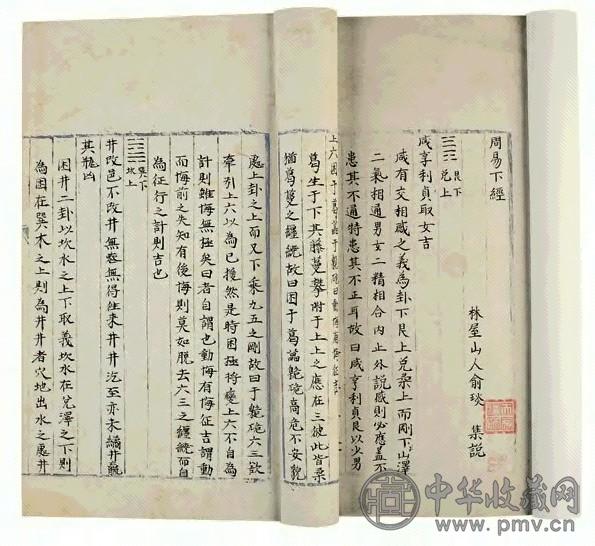 周易下經
林屋山人俞琰 集說
艮下
兌上
咸亨利貞取女吉
咸有交相感之義為卦下艮上兌柔上而剛下山澤
二氣相通男女二精相合內止外說感則必應蓋不
患其不通特患其不正耳故曰咸亨利貞艮以少男
上六困于葛藟于臲卼曰動悔有悔征吉
葛生于下其藤蔓攀附于上上之應在三彼此皆柔
猶葛蔓之纏繞故曰困于葛藟臲卼高危不安貌
處上卦之上而又下乘九五之剛故曰于臲卼六三欲
牽引上六以為己援然是時困極將變上六不自為
計則雖悔無極矣曰者自謂也動悔有悔征吉謂動
而悔前之失知有後悔則莫如脫去六三之纏繞而自
為征行之計則吉也
巽下
坎上
井改邑不改井無喪無得往來井井汔至亦未繘井羸
其瓶凶
困井二卦以坎水之上下取義坎水在兌澤之下則
為困在巽木之上則為井井者穴地出水之處井
中华收藏网
www.pmv.cn